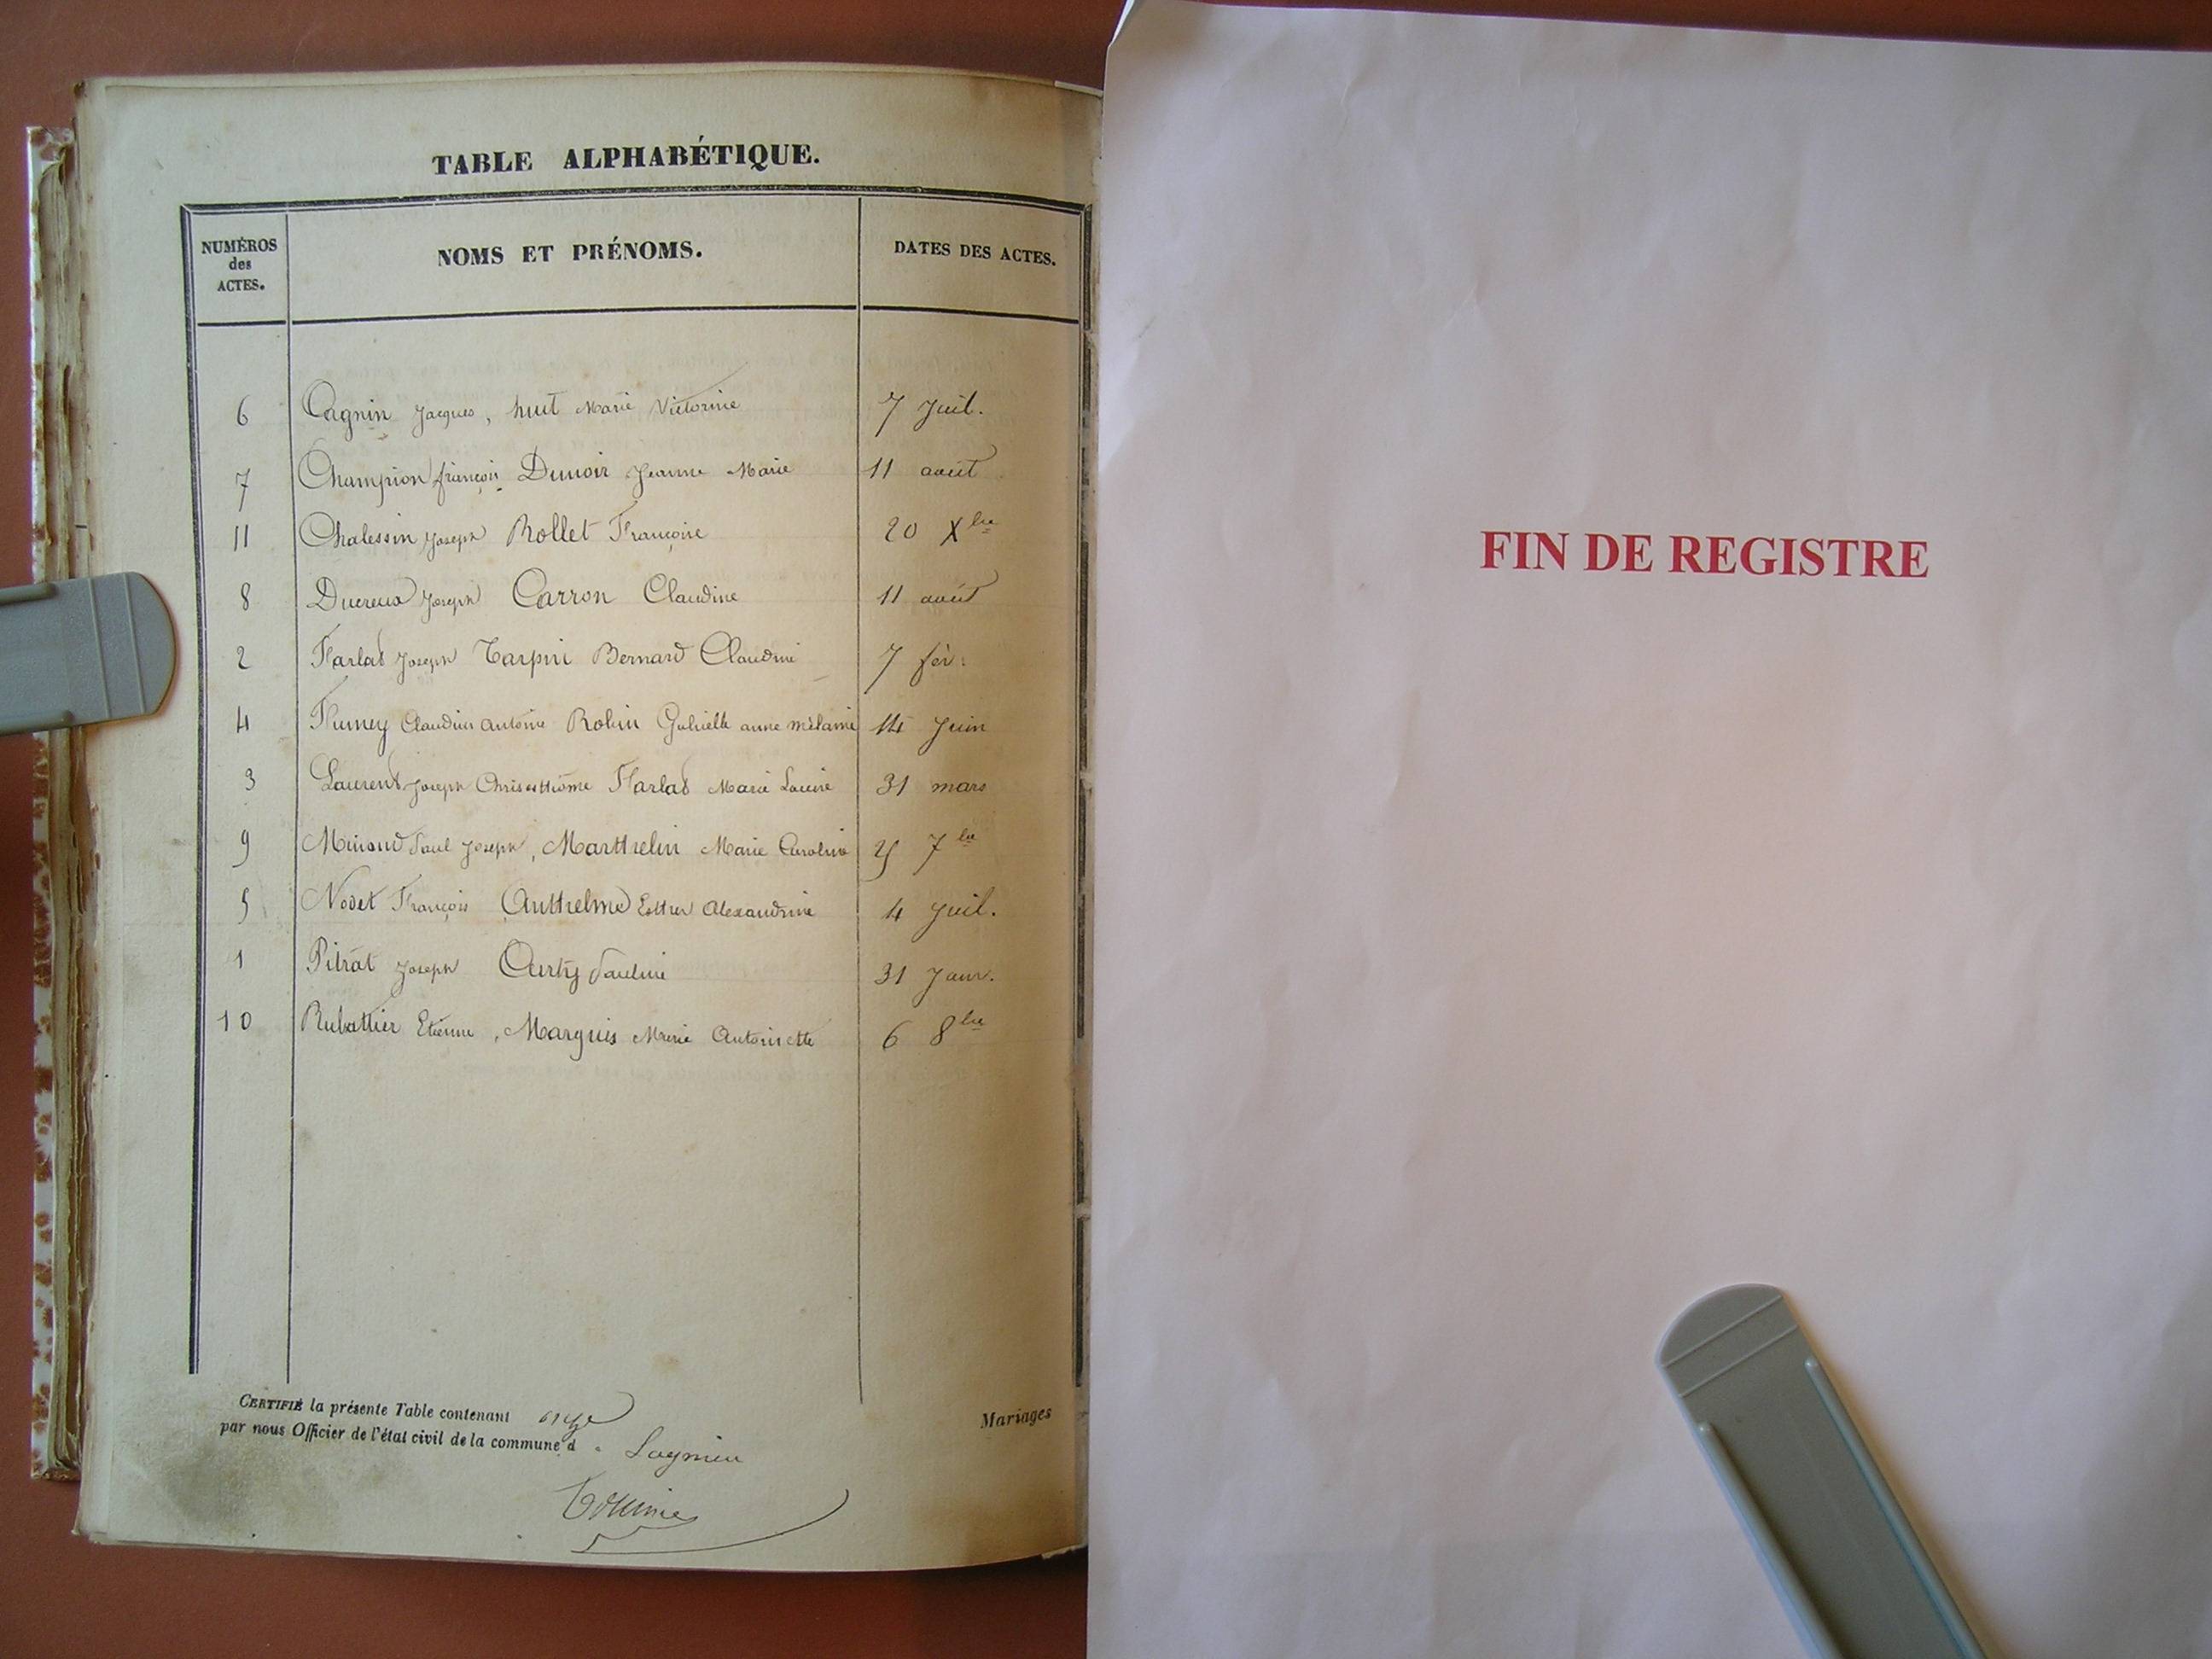 TABLE ALPHABÉTIQUE.
NUMÉROS des ACTES. NOMS ET PRÉNOMS. DATES DES ACTES.
6 Cagnin Jacques, huit Marie Victorine 7 Juil.
7 Champion françois Dunoir Jeanne Marie 11 août
11 Chalessin Joseph Rollet Françoise 20 Xbre
8 Ducreux Joseph Carron Claudine 11 août
2 Joseph Tarpin Bernard Claudine 7 fév:
4 Claudius antoine Robin Gabrielle anne mélanie 14 Juin
3 Laurent Joseph Marie 31 mars
9 Paul Joseph, Marthelin Marie Caroline 25 7bre
5 Nodet François Anthelme Esther Alexandrine 4 Juil.
1 Pitrat Joseph Pauline 31 Janv.
10 Rubattier Etienne, Marquis Marie Antoinette 6 8bre
CERTIFIÉ la présente Table contenant onze
par nous Officier de l'état civil de la commune d e Lagnieu
Mariages
FIN DE REGISTRE